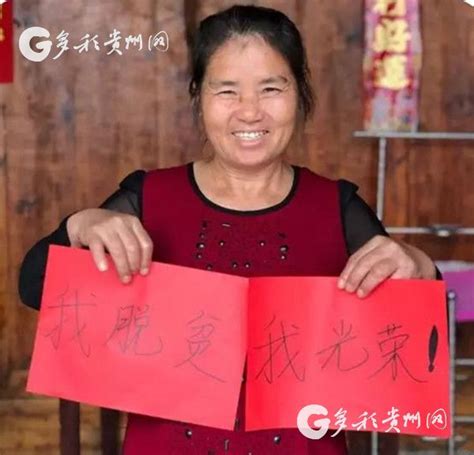 多彩贵州网
行好運
我脱贫 我光荣！
多彩贵州网